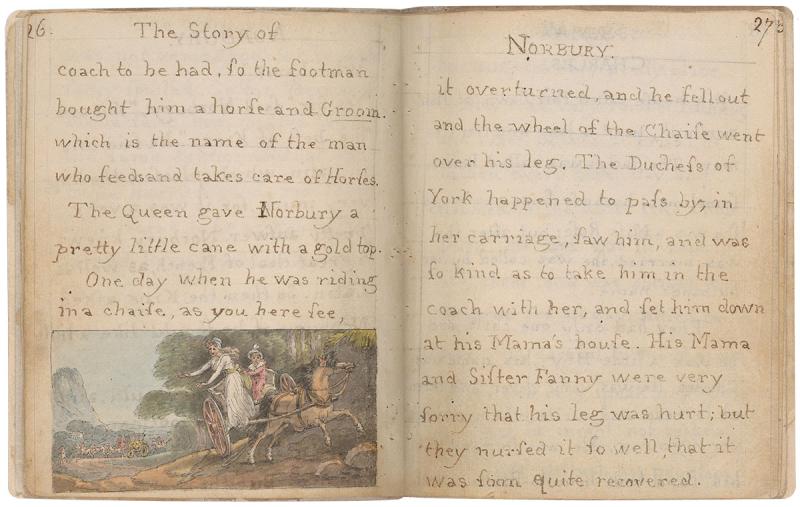 26.
The Story of
coach to be had, ſo the footman
bought him a horſe and Groom.
which is the name of the man
who feedsand takes care of Horſes.
The Queen gave Norbury a
pretty little cane with a gold top.
One day when he was riding
in a chaiſe, as you here ſee,
27
Norbury.
it overturned, and he fell out
and the wheel of the Chaiſe went
over his leg. The Ducheſs of
York happened to paſs by, in
her carriage, ſaw him, and was
ſo kind as to take him in the
coach with her, and ſet him down
at his Mama's houſe. His Mama
and Siſter Fanny were very
ſorry that his leg was hurt; but
they nurſed it ſo well, that it
was ſoon quite recovered.